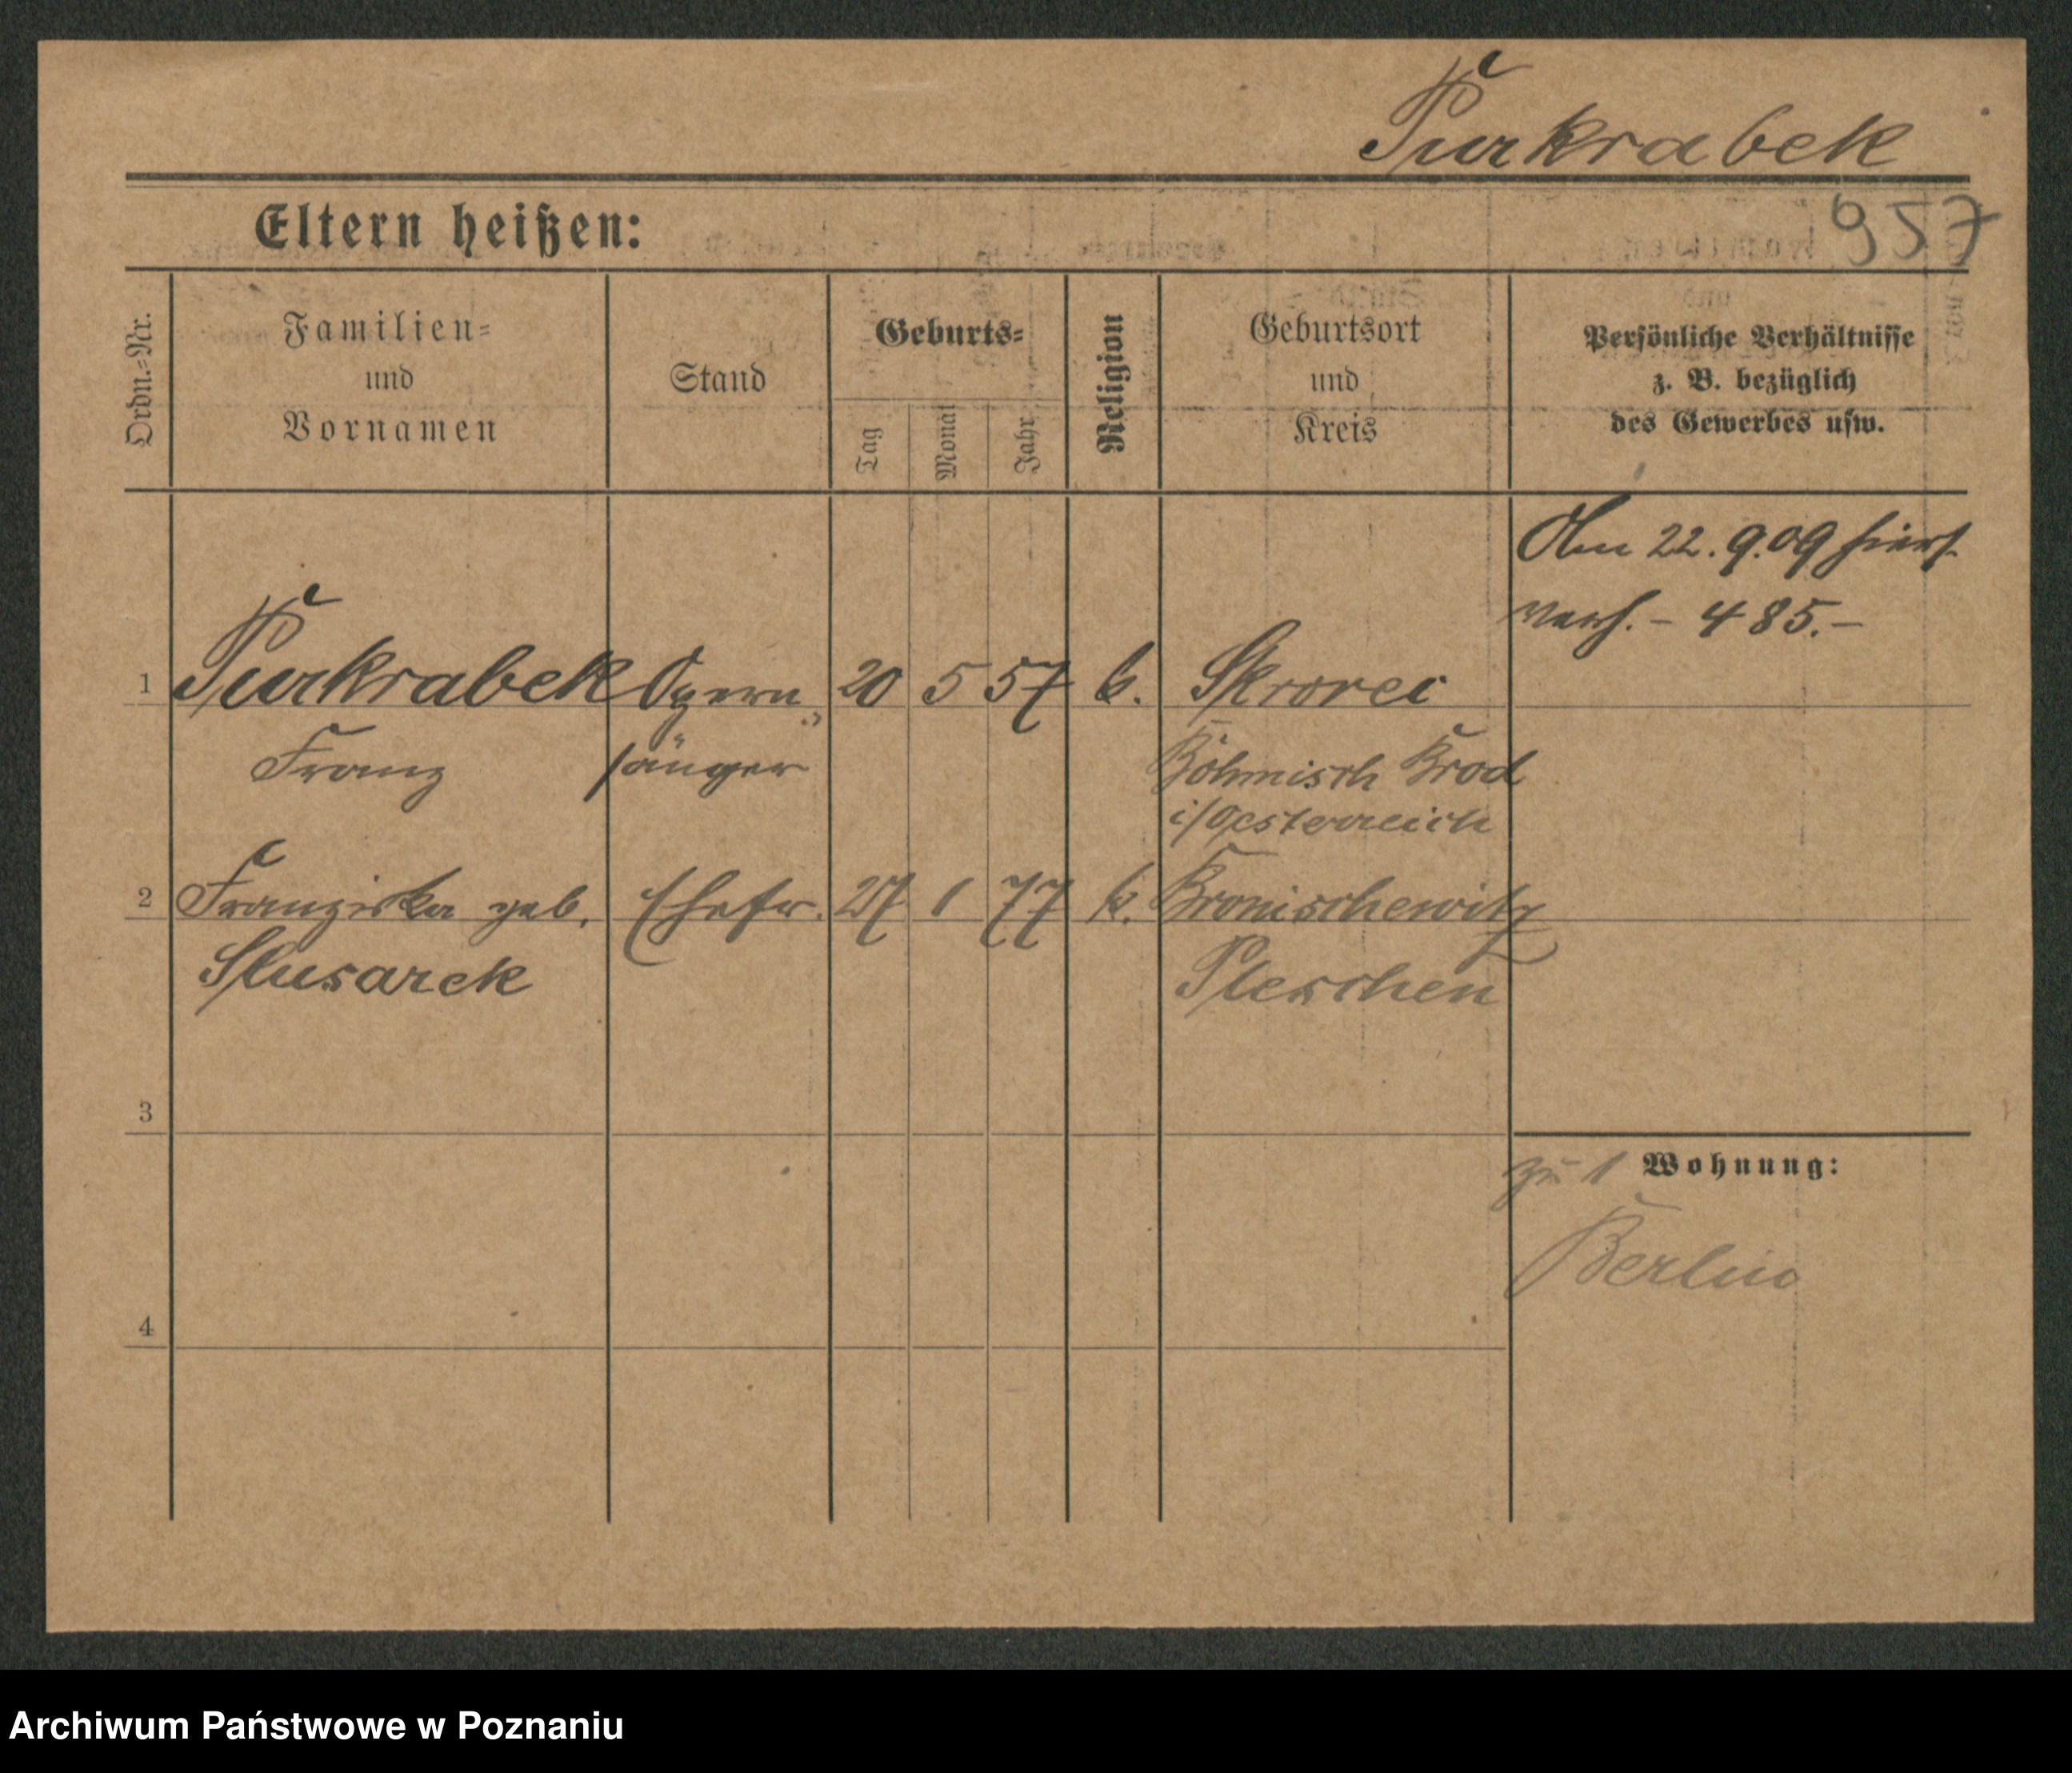 Purkrabek
957
Eltern heißen:
Ordn.-Nr.
Familien-
und
Vornamen
Stand
Geburts-
Tag
Monat
Jahr
Religion
Geburtsort
und
Kreis
Persönliche Verhältnisse
z. B. bezüglich
des Gewerbes usw.
Am 22.9.09 hiers.
verh. - 485.-
1 Purkrabek Opern 20 5 57 k. Skrorec
Franz sänger Böhmisch Brod
i/Oesterreich
2 Franziska geb. Ehefr. 27 1 77 k. Bronischewitz
Slusarek Pleschen
3
zu 1 Wohnung:
Berlin
4
Archiwum Państwowe w Poznaniu